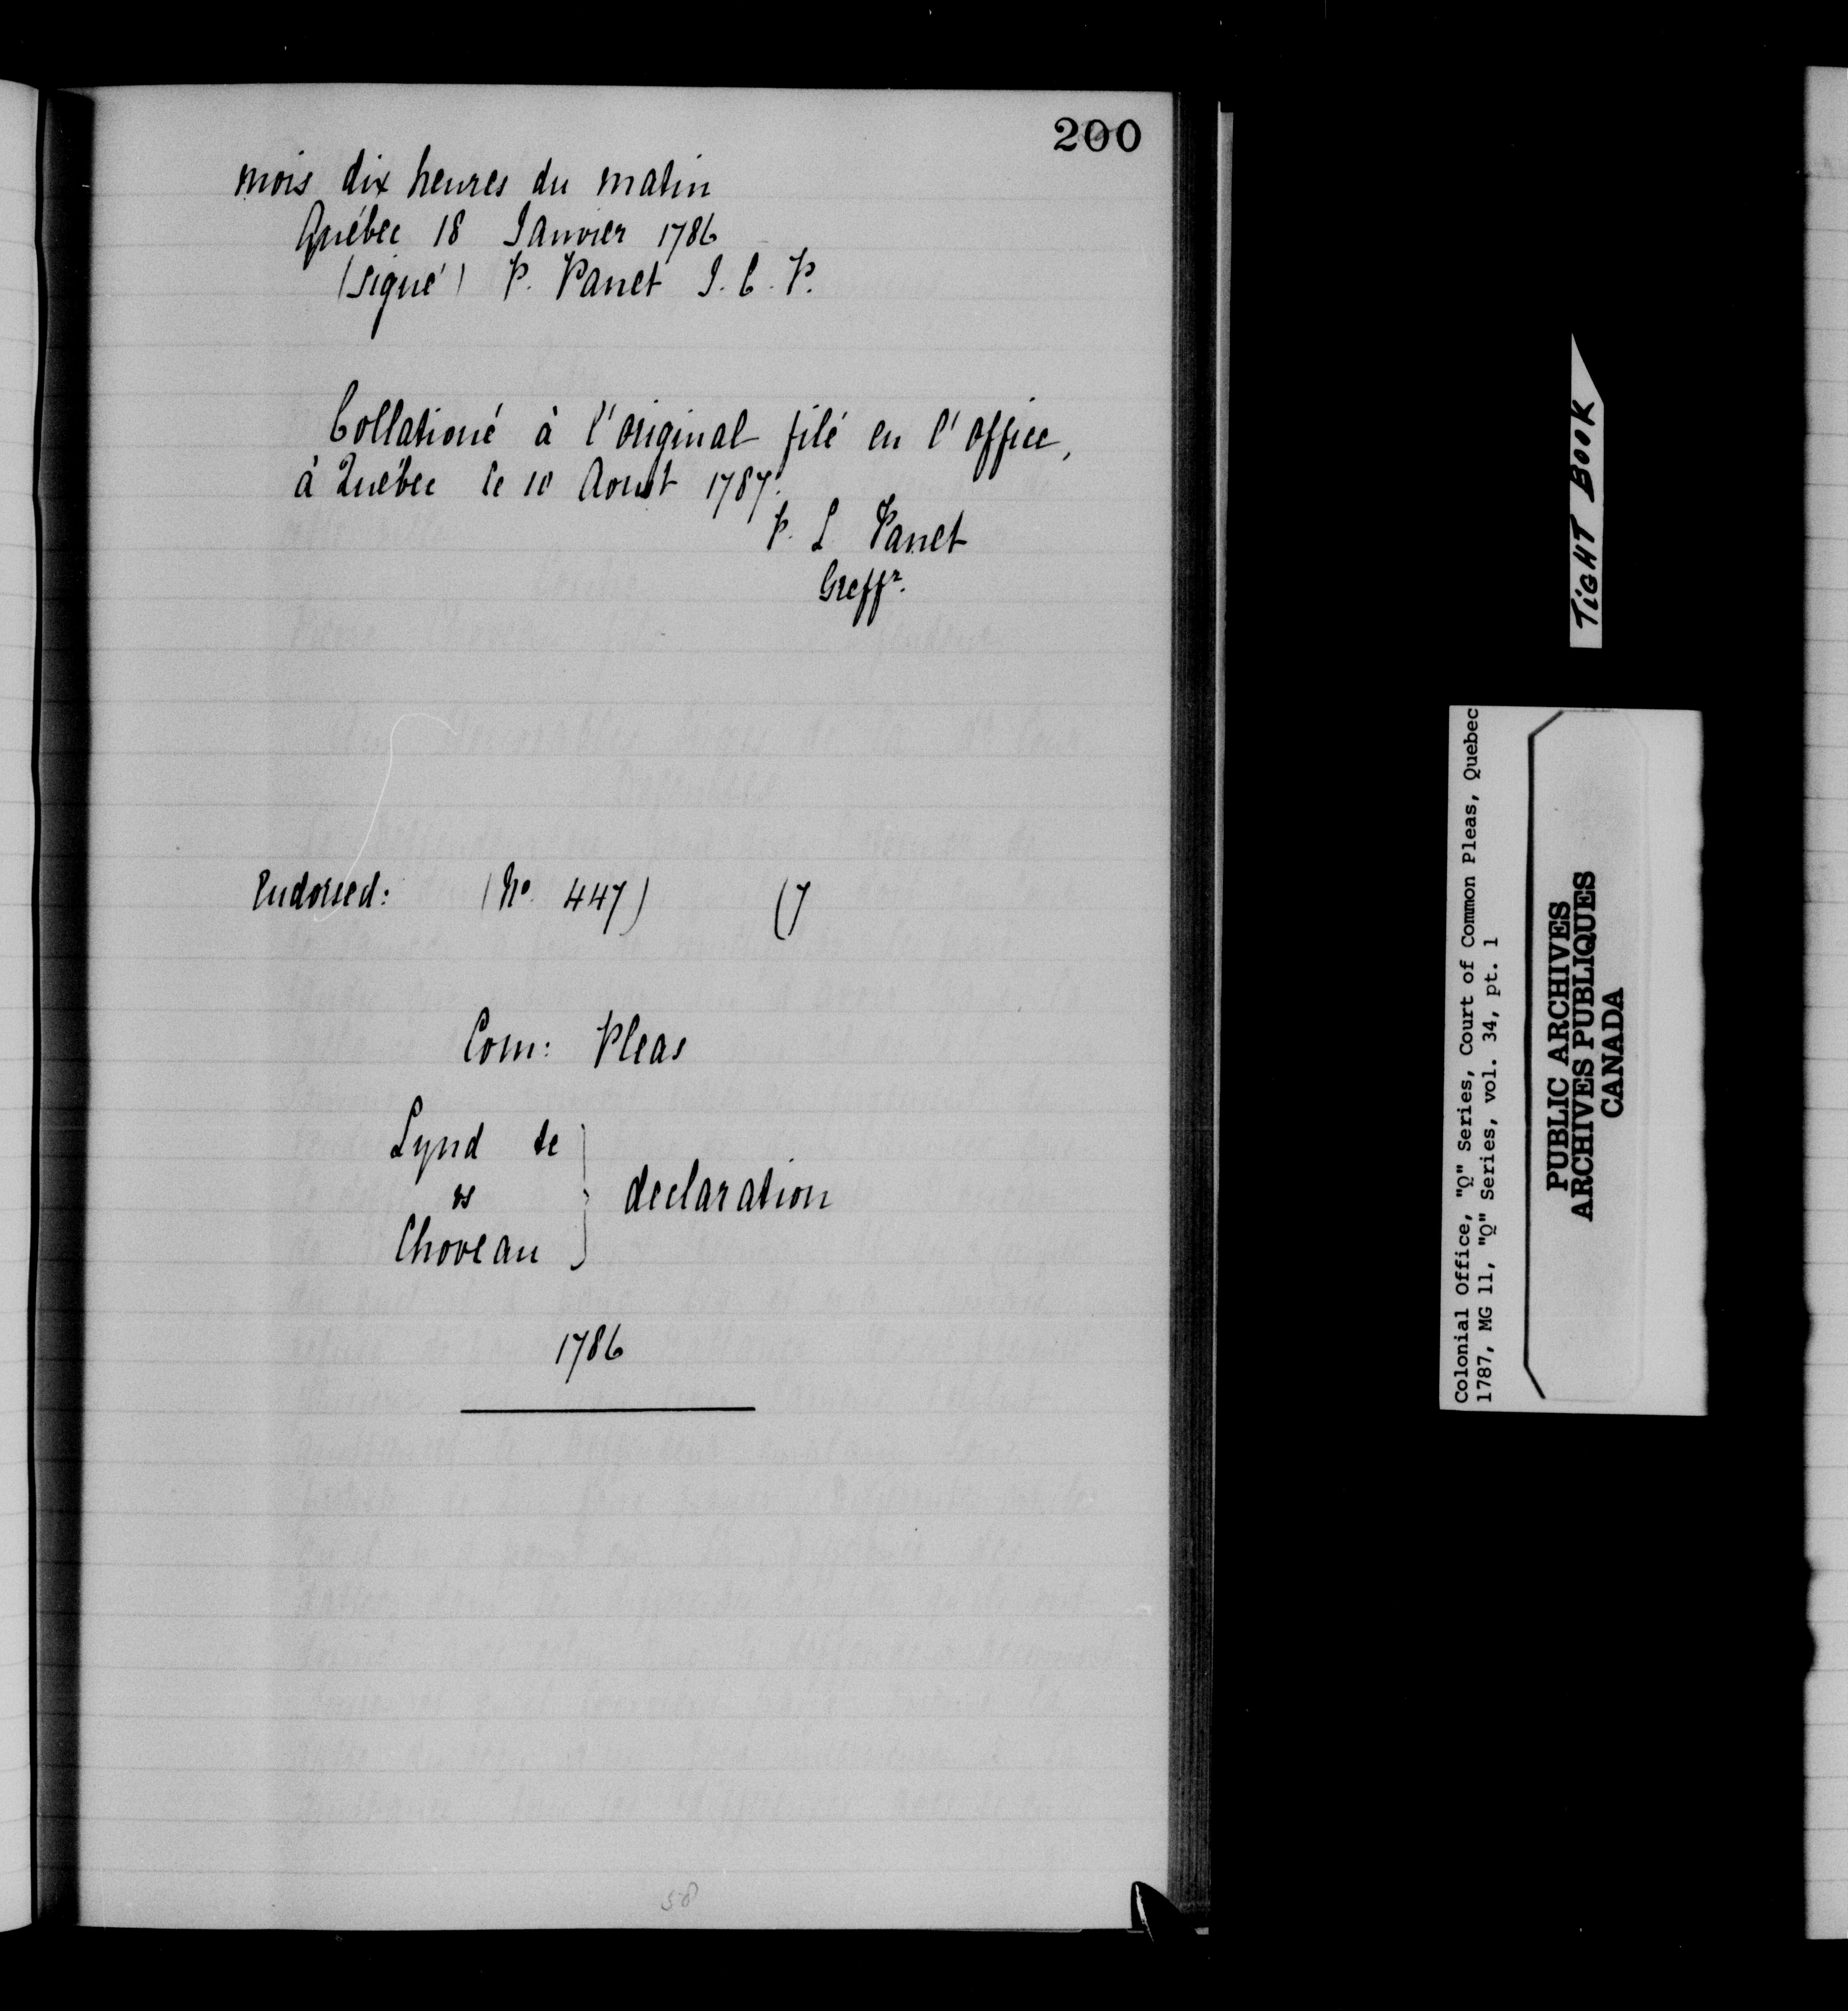 200
mois dix heures du matin
Québec 18 Janvier 1786
(signé) P. Panet J. C. P.
Collationé à l'original filé en l'office,
à Québec le 10 Aoust 1787.
P. L Panet
Greffr.
Endorsed: (No. 447) (7
Com: Pleas
Lynd de
vs
Choveau } declaration
1786
58
TIGHT BOOK
Colonial Office, "Q" Series, Court of Common Pleas, Quebec
1787, MG 11, "Q" Series, vol. 34, pt. 1
PUBLIC ARCHIVES
ARCHIVES PUBLIQUES
CANADA